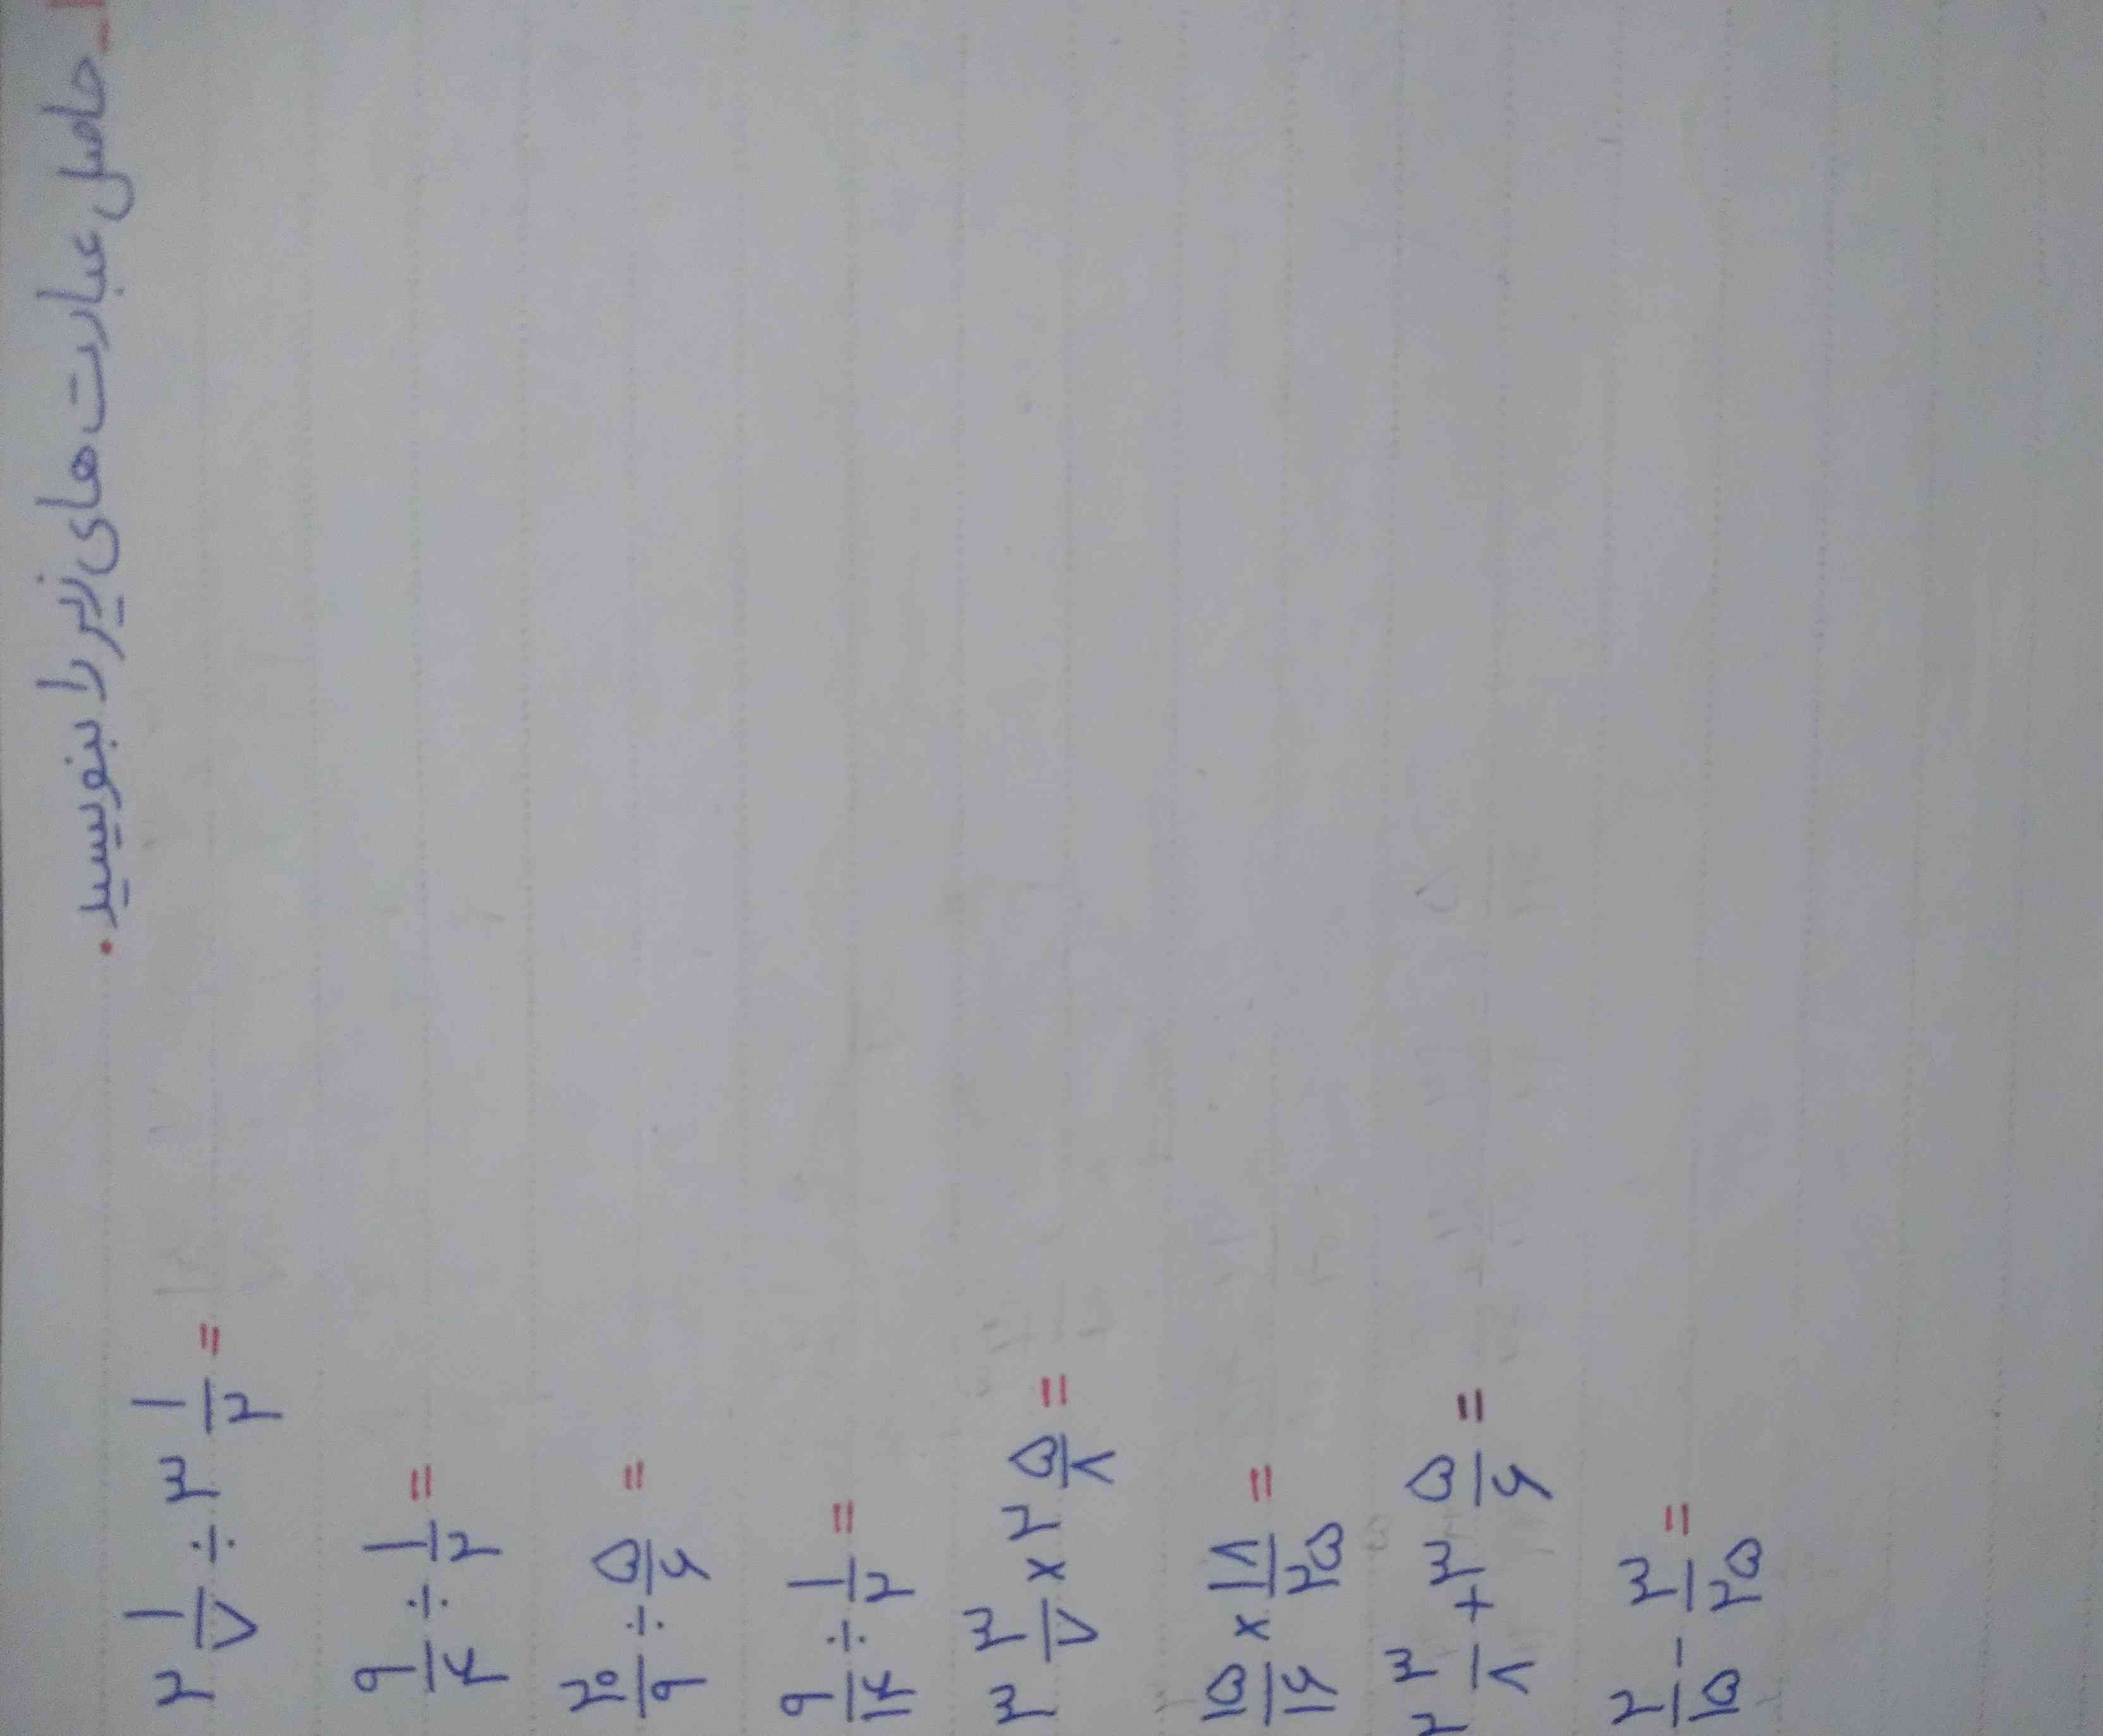 ۱_ حاصل عبارت های زیر را بنویسید.
۲ ۱/۷ ÷ ۳ ۱/۲ =
۹/۴ ÷ ۱/۲ =
۲۰/۹ ÷ ۵/۶ =
۹/۱۴ ÷ ۱/۲ =
۳ ۳/۷ × ۲ ۵/۸ =
۱۵/۱۶ × ۱۸/۲۵ =
۲ ۳/۸ + ۳ ۵/۶ =
۲/۱۵ − ۳/۲۵ =